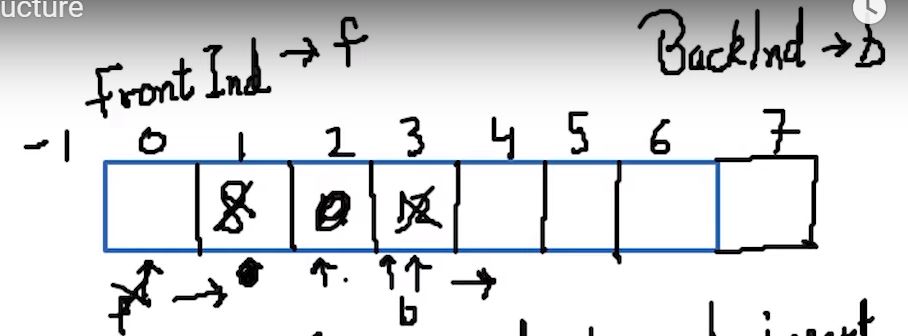 ucture
Front Ind → f
BackInd → b
-1 0 1 2 3 4 5 6 7
8
b
insert